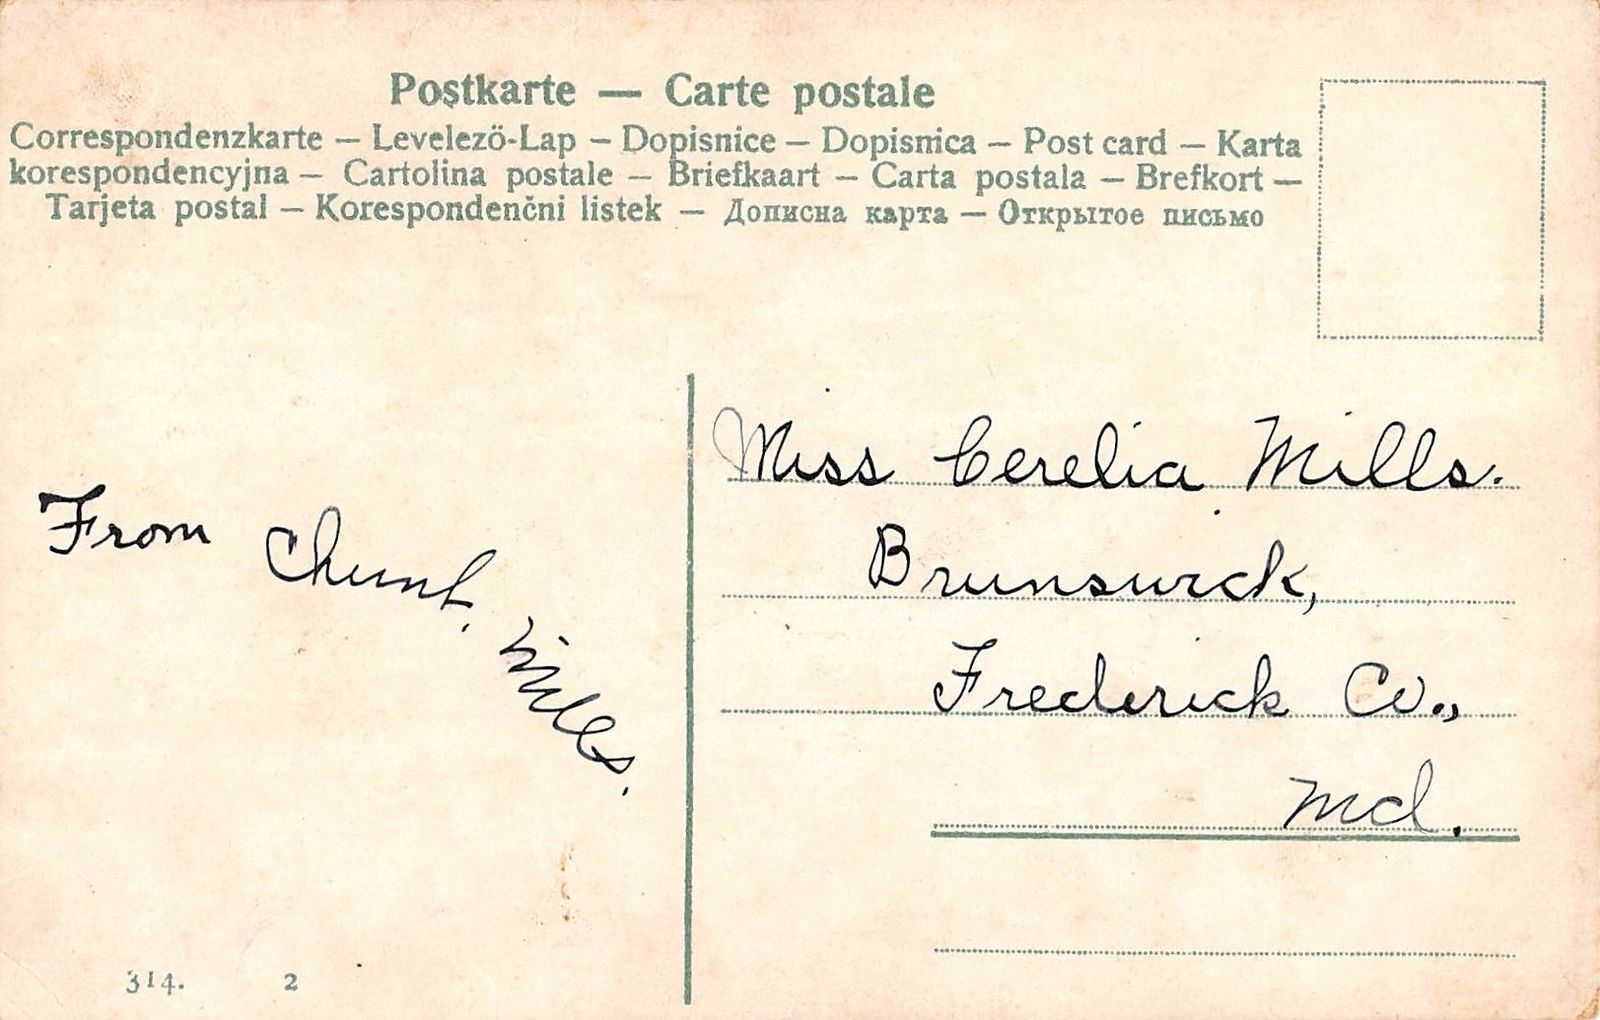 Postkarte — Carte postale
Correspondenzkarte — Levelező-Lap — Dopisnice — Dopisnica — Post card — Karta
korespondencyjna — Cartolina postale — Briefkaart — Carta postala — Brefkort —
Tarjeta postal — Korespondenčni listek — Дописна карта — Открытое письмо
Miss Cerelia Mills.
Brunswick,
Frederick Co.,
Md.
From
Mills.
314. 2